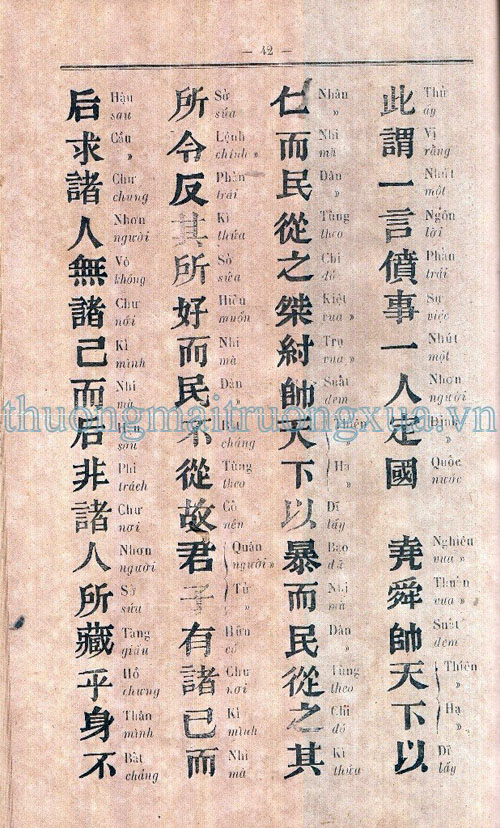 — 42 —
此謂一言僨事一人定國 堯舜帥天下以
Thử ấy
Vị rằng
Nhứt một
Ngôn lời
Phàn trái
Sự việc
Nhứt một
Nhơn người
Định »
Quốc nước
Nghiêu vua »
Thuấn vua »
Suất đem
Thiên »
Hạ »
Dĩ lấy
仁而民從之桀紂帥天下以暴而民從之其
Nhân »
Nhi mà
Dân »
Tùng theo
Chi đó
Kiệt vua »
Trụ vua »
Suất đem
Thiên
Hạ »
Dĩ lấy
Bạo dữ
Nhi mà
Dân »
Tùng theo
Chi đó
Kì thửa
所令反其所好而民不從故君子有諸己而
Sở sửa
Lệnh chính »
Phản trái
Kì thửa
Sở sửa
Hiếu muốn
Nhi mà
Dân »
chẳng
Tùng theo
Cố nên
Quân người »
Tử »
Hữu có
Chư nơi
Kỉ mình
Nhi mà
后求諸人無諸己而后非諸人所藏乎身不
Hậu sau
Cầu »
Chư chung
Nhơn người
Vô không
Chư nơi
Kỉ mình
Nhi mà
Hậu sau
Phi trách
Chư nơi
Nhơn người
Sở sửa
Tàng giấu
Hồ chưng
Thân mình
Bất chẳng
thuongmaitruongxua.vn